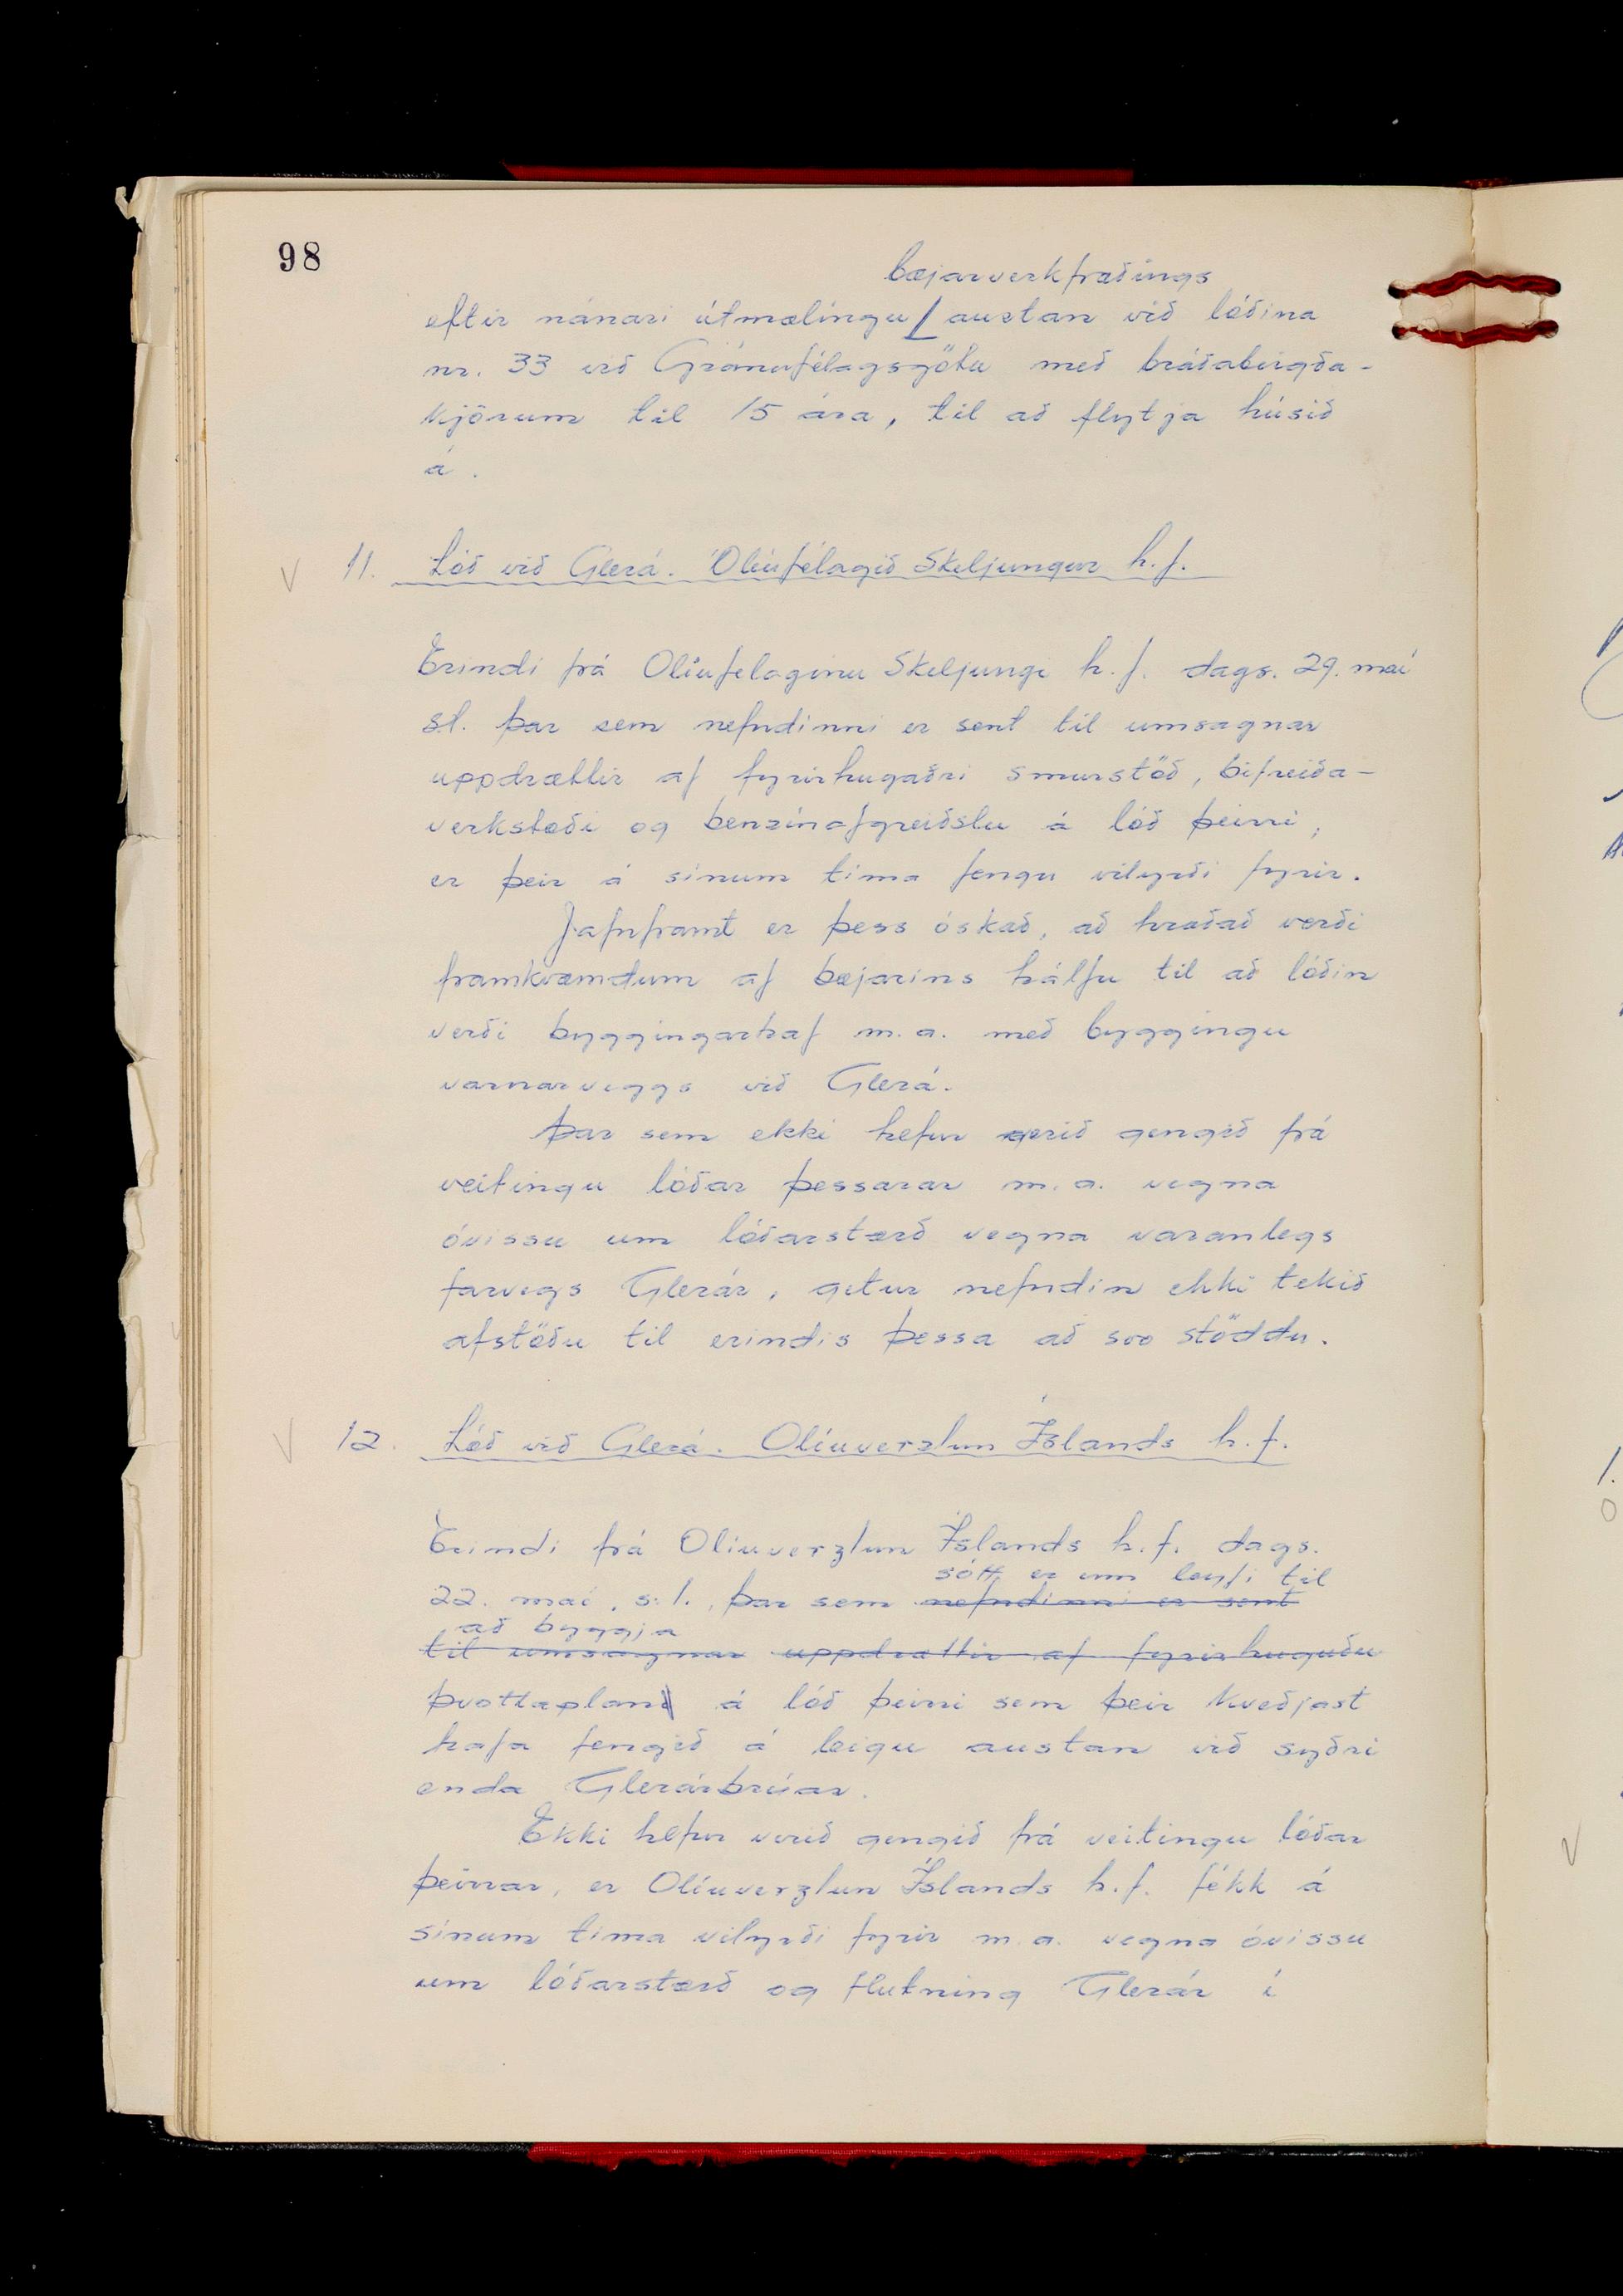 98
bæjarverkfræðings
eftir nánari útmælingu austan við lóðina
nr. 33 við Gránufélagsgötu með bráðabirgða-
kjörum til 15 ára, til að flytja húsið
á.
V 11. Lóð við Glerá. Olíufélagið Skeljungur h.f.
Erindi frá Olíufelaginu Skeljungi h.f. dags. 29. maí
s.l. þar sem nefndinni er sent til umsagnar
uppdrættir af fyrirhugaðri smurstöð, bifreiða-
verkstæði og benzínafgreiðslu á lóð þeirri,
er þeir á sínum tíma fengu vilyrði fyrir.
Jafnframt er þess óskað, að hraðað verði
framkvæmdum af bæjarins hálfu til að lóðin
verði byggingarhæf m.a. með byggingu
varnarveggs við Glerá.
Þar sem ekki hefur verið gengið frá
veitingu lóðar þessarar m.a. vegna
óvissu um lóðarstærð vegna varanlegs
farvegs Glerár, getur nefndin ekki tekið
afstöðu til erindis þessa að svo stöddu.
V 12. Lóð við Glerá. Olíuverzlun Íslands h.f.
Erindi frá Olíuverzlun Íslands h.f. dags.
sótt er um leyfi til
22. maí, s.l., þar sem nefndinni er sent
að byggja
til umsagnar uppdrættir af fyrirhuguðu
þvottaplani á lóð þeirri sem þeir kveðjast
hafa fengið á leigu austan við syðri
enda Glerárbrúar.
Ekki hefur verið gengið frá veitingu lóðar
þeirrar, er Olíuverzlun Íslands h.f. fékk á
sínum tíma vilyrði fyrir m.a. vegna óvissu
um lóðarstærð og flutning Glerár í